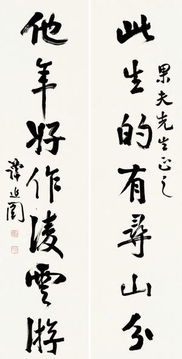 果夫先生正之
此生的有尋山分
他年好作凌雲游
譚延闓